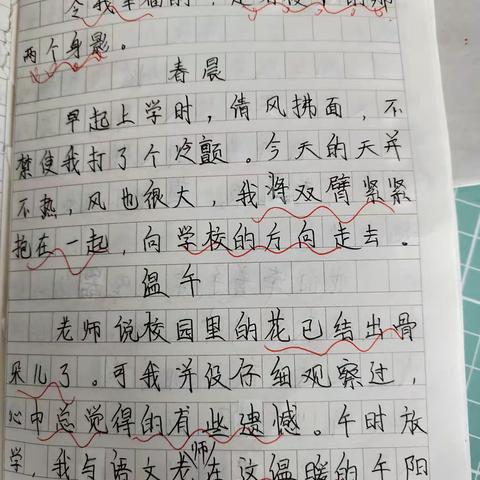 令我幸福的，是
两个身影。
春晨
早起上学时，倩风拂面，不
禁使我打了个冷颤。今天的天并
不热，风也很大，我将双臂紧紧
抱在一起，向学校的方向走去。
温午
老师说校园里的花已结出骨
朵儿了。可我并没仔细观察过，
心中总觉得的有些遗憾。午时放
学，我与语文老师在这温暖的午阳